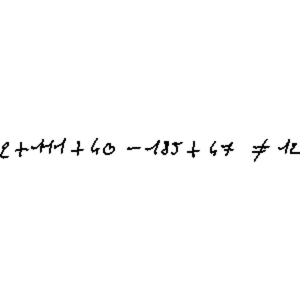 2+111+40-185+47 ≠ 12